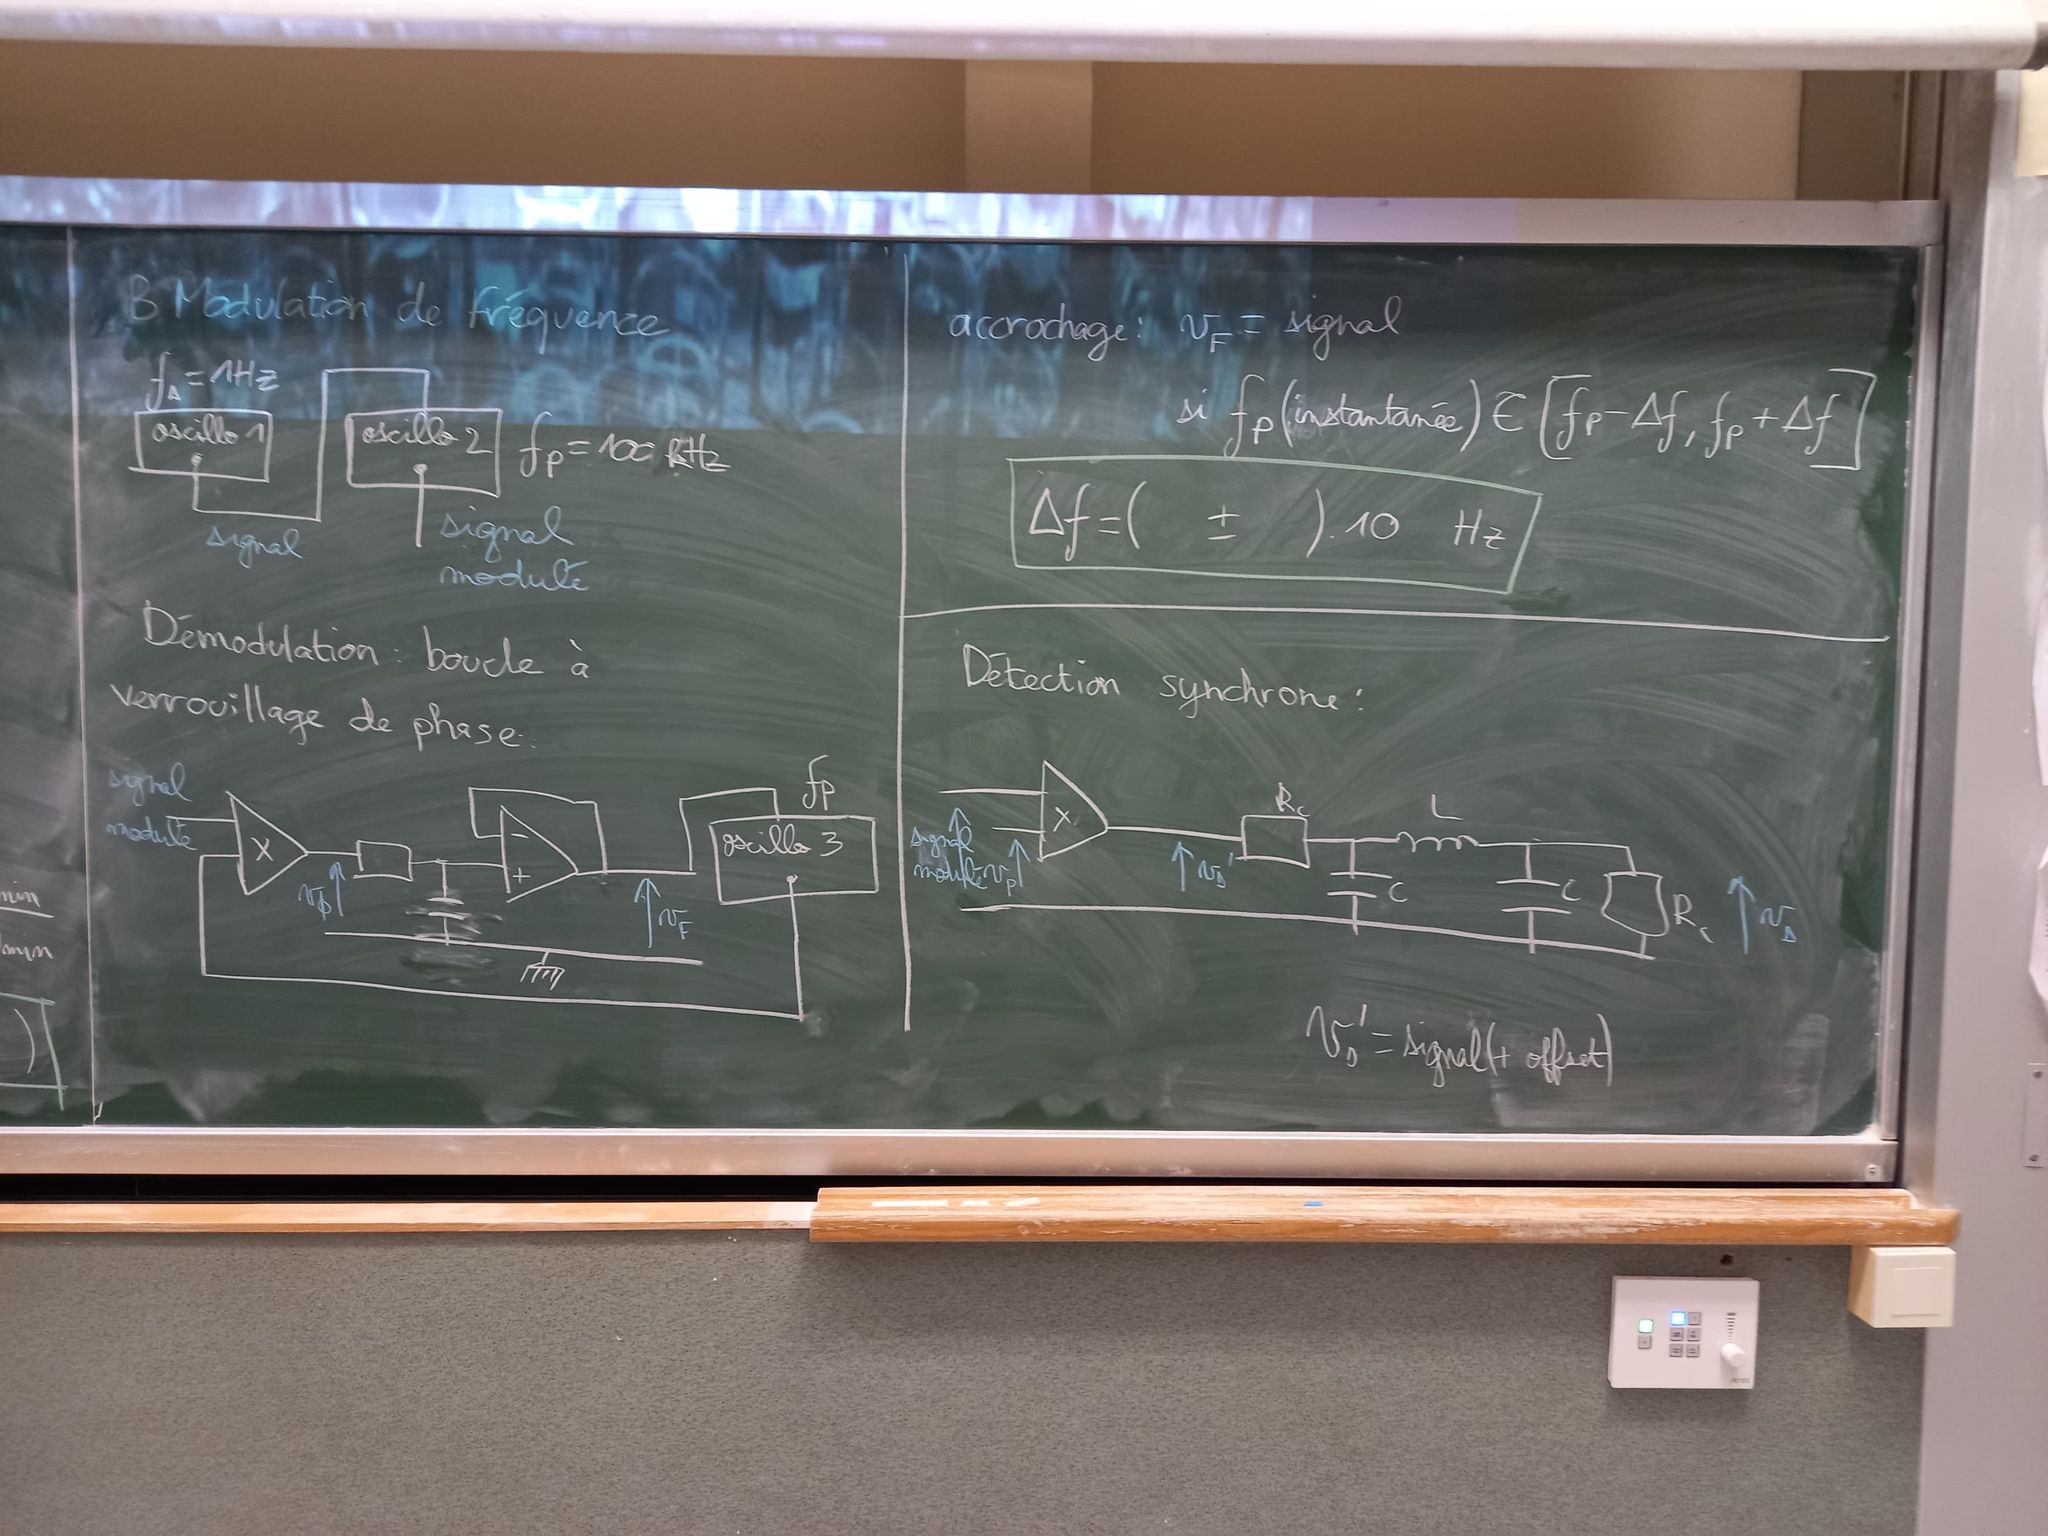 B Modulation de fréquence
f_s = 1Hz
oscillo 1
oscillo 2
f_p = 100 kHz
signal
signal
modulé
Démodulation : boucle à
verrouillage de phase :
signal
modulé
X
v_ϕ
-
+
v_F
f_p
oscillo 3
min
min
)
accrochage : v_F = signal
si f_p (instantanée) ∈ [f_p - Δf, f_p + Δf]
Δf = (   ±   ).10   Hz
Détection synchrone :
signal
modulé
v_p
X
v_s'
R_c
L
C
C
R_c
v_s
v_s' = signal (+ offset)